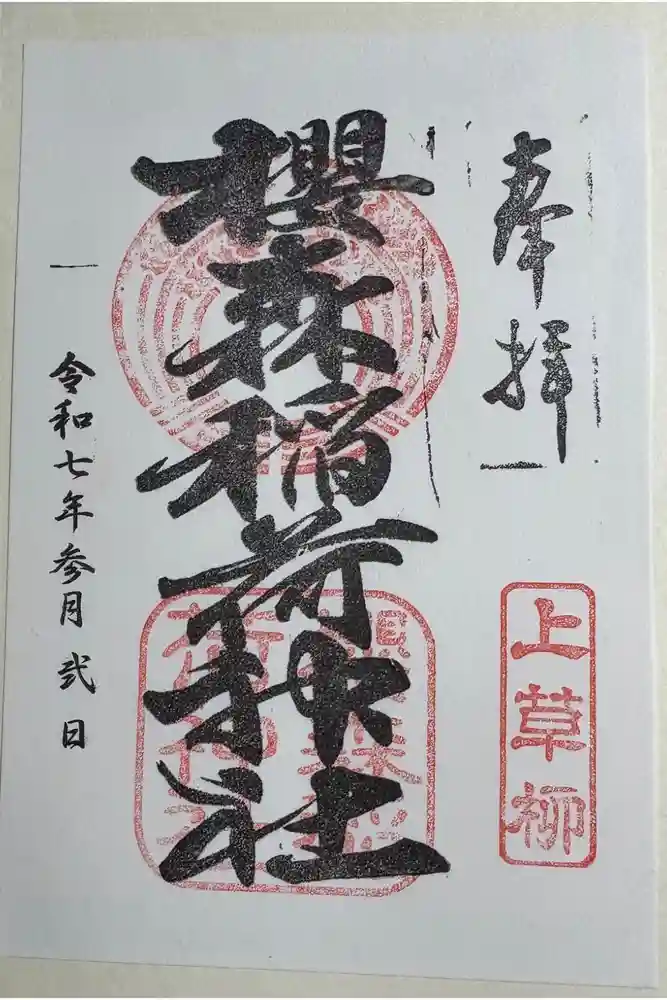 奉拝
上草柳
櫻森稲荷神社
令和七年参月弐日